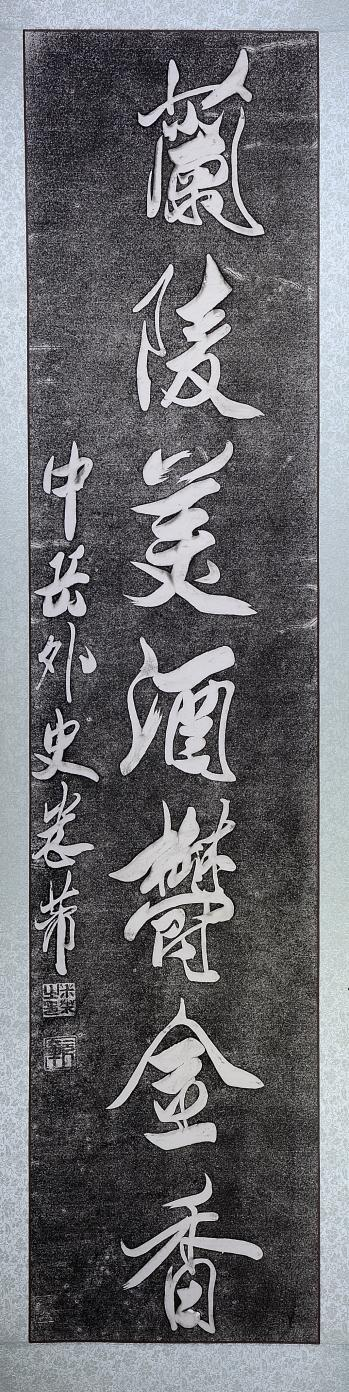 蘭陵美酒鬱金香
中岳外史米芾